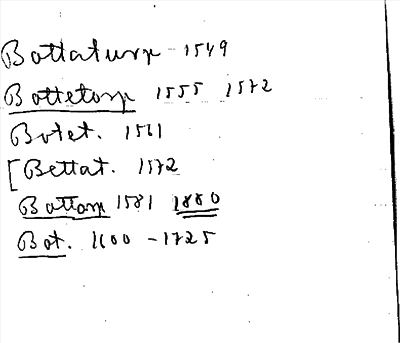 Battatorp 1549
Bottetorp 1555 1572
Botet. 1561
[Bettat. 1572
Bottorp 1581 1880
Bot. 1600 - 1725